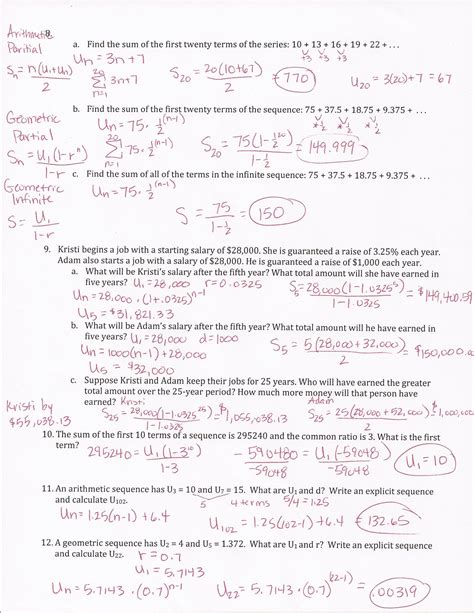 Arithmetic 8.
Paritial
a. Find the sum of the first twenty terms of the series: 10 + 13 + 16 + 19 + 22 + . . .
+3 +3 +3
Un = 3n+7
Sn = n(U1+Un) / 2
20 Σ n=1 3n+7
S20 = 20(10+67) / 2 = 770
U20 = 3(20)+7 = 67
b. Find the sum of the first twenty terms of the sequence: 75 + 37.5 + 18.75 + 9.375 + . . .
Geometric
Partial
Un = 75 · ½^(n-1)
×½ ×½ ×½
Sn = U1(1-r^n) / 1-r
20 Σ n=1 75 · ½^(n-1)
S20 = 75(1-½^20) / 1-½ = 149.999
c. Find the sum of all of the terms in the infinite sequence: 75 + 37.5 + 18.75 + 9.375 + . . .
Geometric
Infinite
Un = 75 · ½^(n-1)
S = U1 / 1-r
S = 75 / 1-½ = 150
9. Kristi begins a job with a starting salary of $28,000. She is guaranteed a raise of 3.25% each year.
Adam also starts a job with a salary of $28,000. He is guaranteed a raise of $1,000 each year.
a. What will be Kristi's salary after the fifth year? What total amount will she have earned in
five years? U1 = 28,000 r = 0.0325
S5 = 28,000(1-1.0325^5) / 1-1.0325 = $149,400.59
Un = 28,000 · (1+.0325)^n-1
U5 = $31,821.33
b. What will be Adam's salary after the fifth year? What total amount will he have earned in
five years? U1 = 28,000 d = 1000
Un = 1000(n-1) + 28,000
S5 = 5(28,000 + 32,000) / 2 = $150,000.00
U5 = $32,000
c. Suppose Kristi and Adam keep their jobs for 25 years. Who will have earned the greater
total amount over the 25-year period? How much more money will that person have
earned? Kristi Adam
Kristi by
$55,038.13
S25 = 28,000(1-1.0325^25) / 1-1.0325 = $1,055,038.13
S25 = 25(28,000 + 52,000) / 2 = $1,000,000
10. The sum of the first 10 terms of a sequence is 295240 and the common ratio is 3. What is the first
term?
295240 = U1(1-3^10) / 1-3
-590480 / -59048 = U1(-59048) / -59048
U1 = 10
11. An arithmetic sequence has U3 = 10 and U7 = 15. What are U1 and d? Write an explicit sequence
and calculate U102.
5
4 terms 5/4 = 1.25
Un = 1.25(n-1) + 6.4
U102 = 1.25(102-1) + 6.4 = 132.65
12. A geometric sequence has U2 = 4 and U5 = 1.372. What are U1 and r? Write an explicit sequence
and calculate U22.
r = 0.7
U1 = 5.7143
Un = 5.7143 · (0.7)^n-1
U22 = 5.7143 · (0.7)^(22-1) = .00319